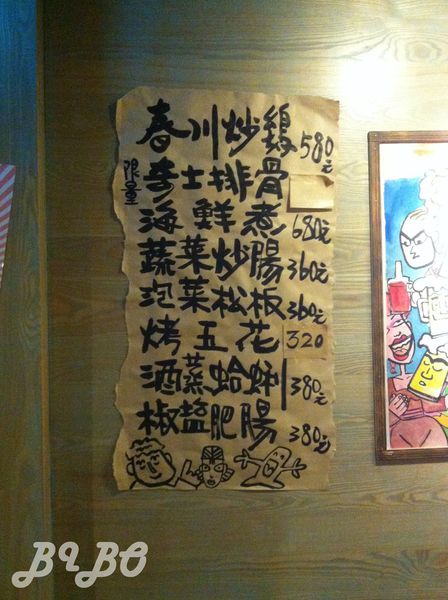 春川炒鷄 580元
限量 起士排骨
海鮮煮 680元
蔬菜炒腸 360元
泡菜松板 360元
烤五花 320
酒蒸蛤蜊 380元
椒盐肥腸 380元
BIBO